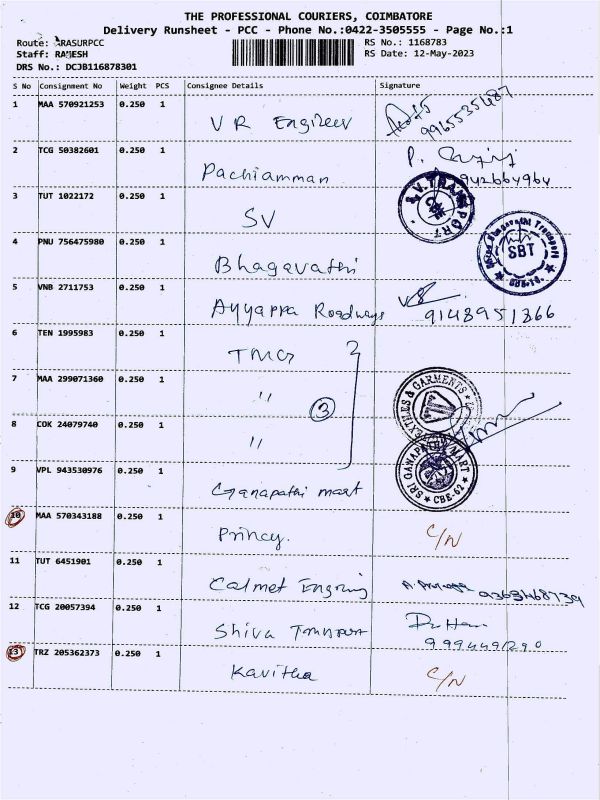 THE PROFESSIONAL COURIERS, COIMBATORE
Delivery Runsheet - PCC - Phone No.:0422-3505555 - Page No.:1
Route: ARASURPCC RS No.: 1168783
Staff: RAMESH RS Date: 12-May-2023
DRS No.: DCJB116878301
S No Consignment No Weight PCS Consignee Details Signature
1 MAA 570921253 0.250 1 V R Engineer 9965535487
2 TCG 50382601 0.250 1 Pachiamman P. 942664964
3 TUT 1022172 0.250 1 SV S.V. TRANSPORT
4 PNU 756475980 0.250 1 Bhagavathi SBT
5 VNB 2711753 0.250 1 Ayyappa Roadways 9148951366
6 TEN 1995983 0.250 1 TMG
7 MAA 299071360 0.250 1 " 3 TEXTILES & GARMENTS
8 COK 24079740 0.250 1 "
9 VPL 943530976 0.250 1 Ganapathi mart SRI GANAPATHI MART CBE-62
10 MAA 570343188 0.250 1 Princy. C/N
11 TUT 6451901 0.250 1 Calmet Engring
12 TCG 20057394 0.250 1 Shiva 9994491290
13 TRZ 205362373 0.250 1 Kavitha C/N